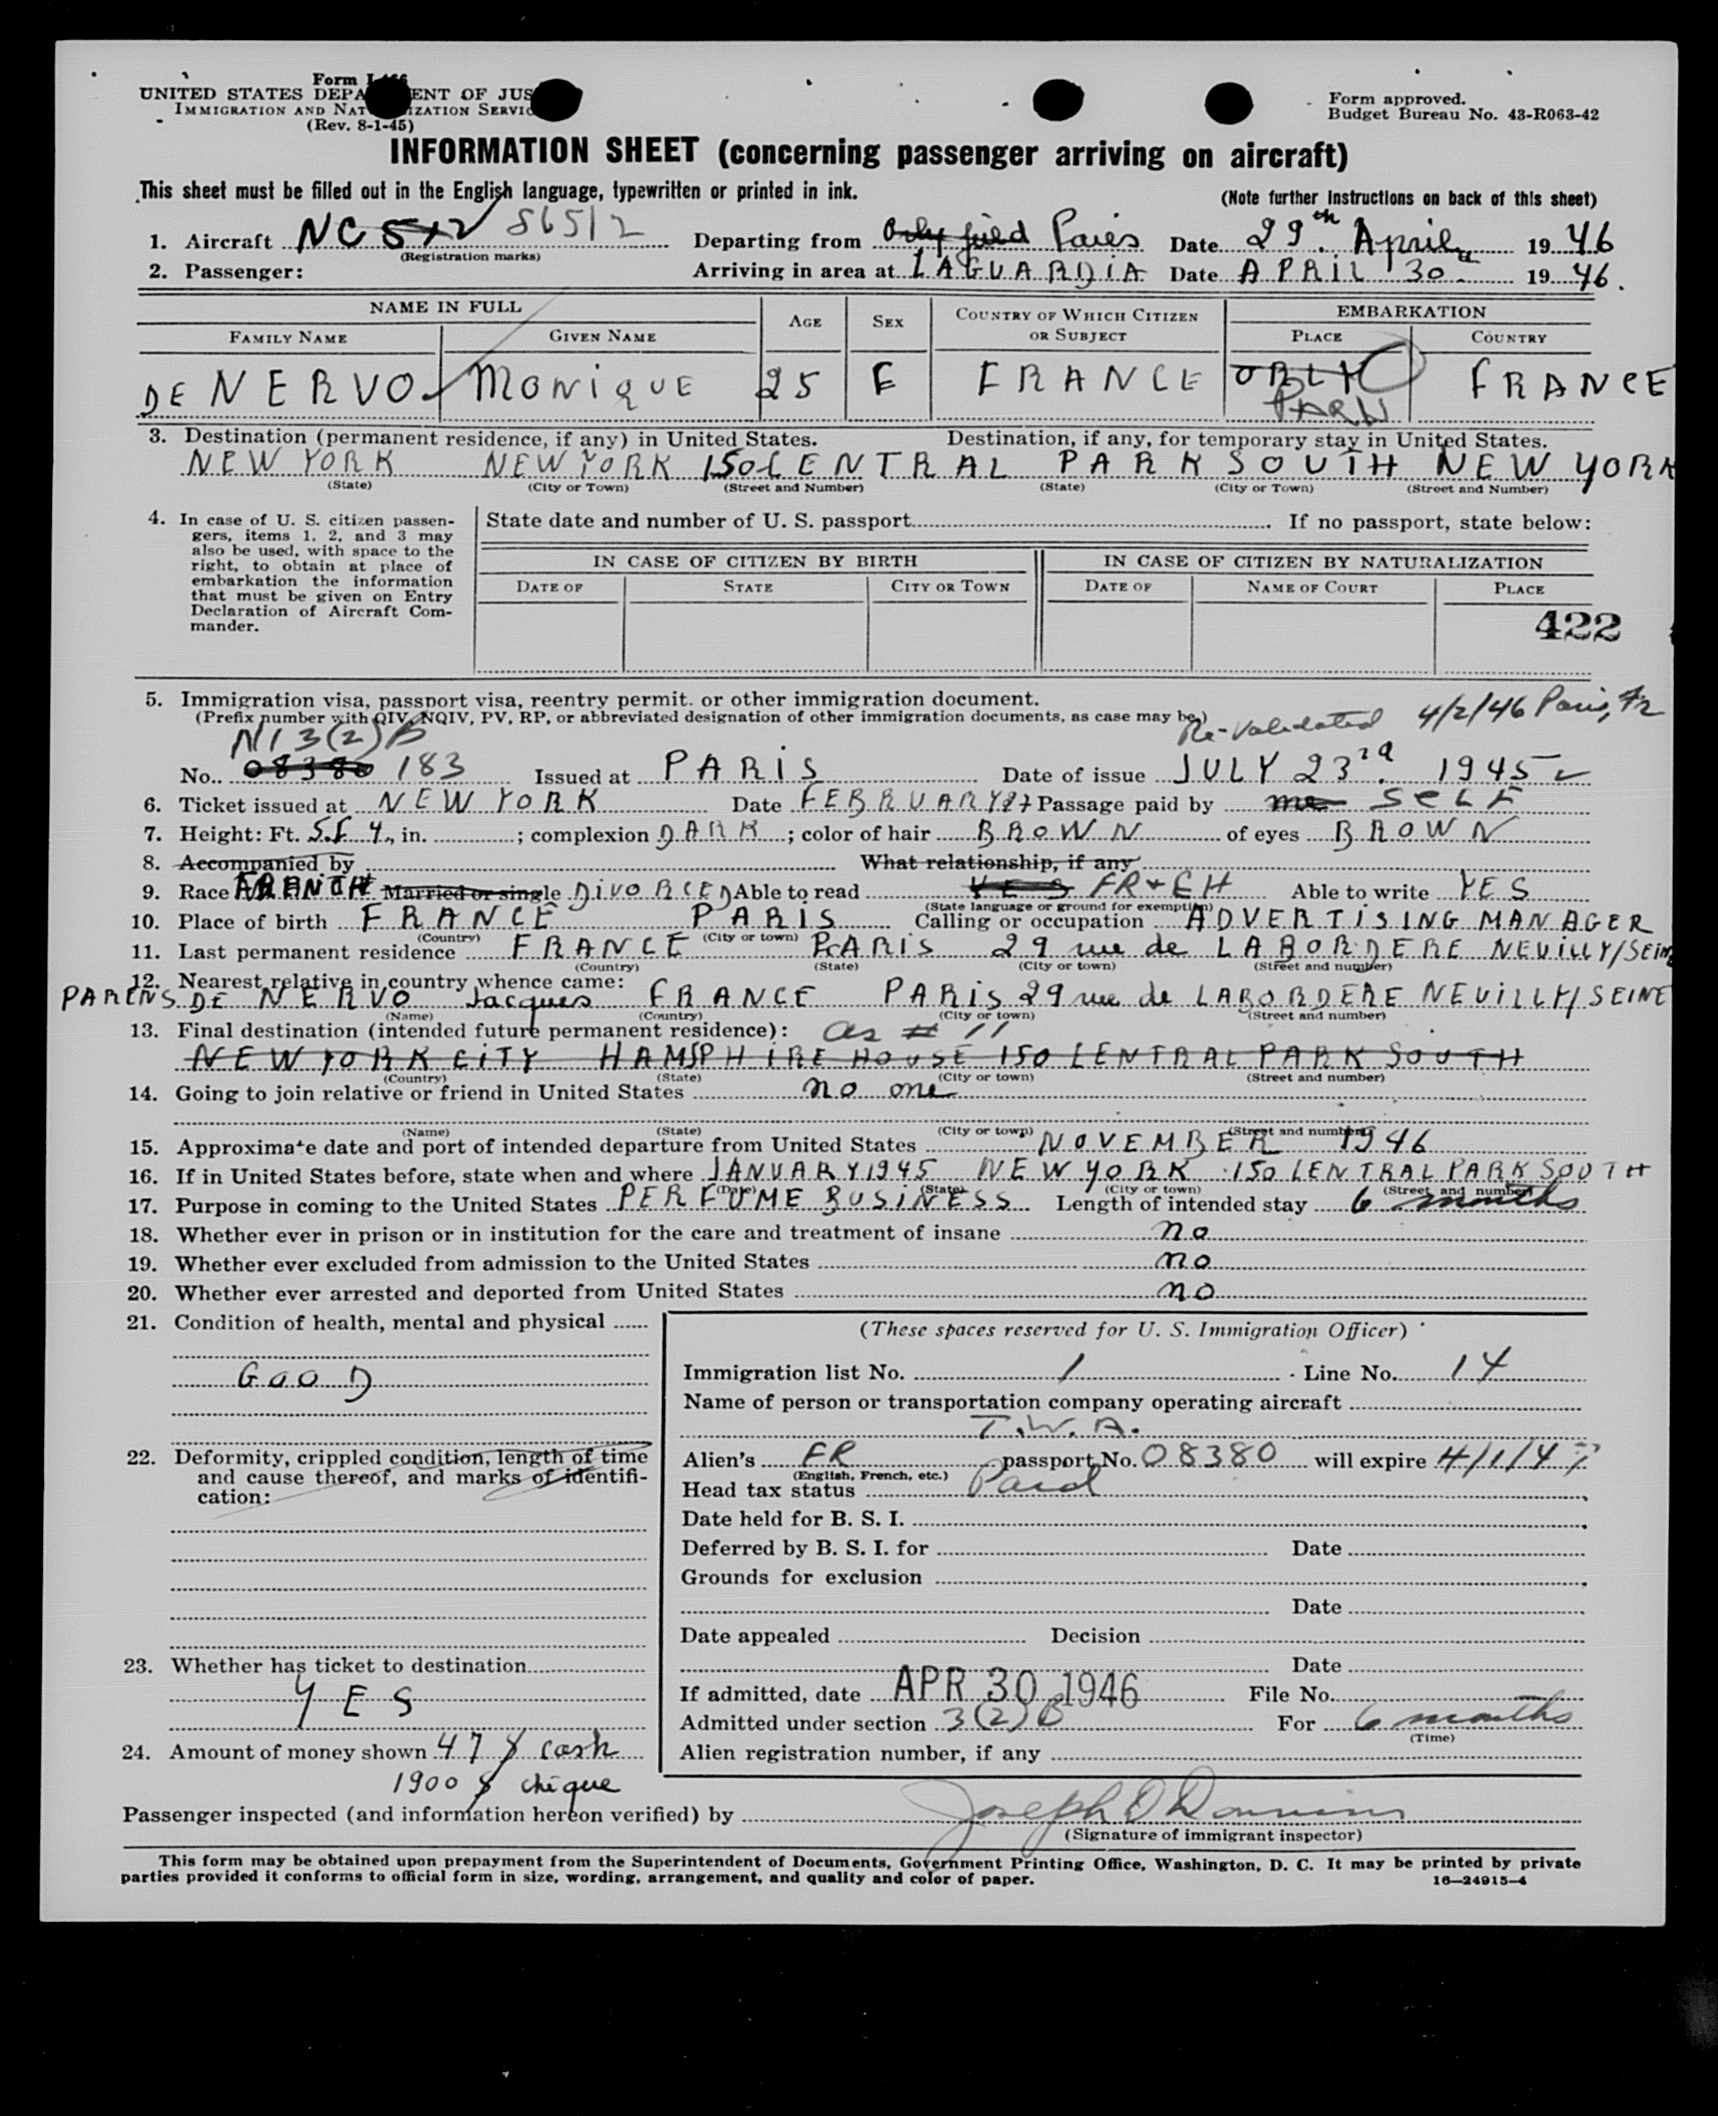 Form I-466
UNITED STATES DEPARTMENT OF JUSTICE
IMMIGRATION AND NATURALIZATION SERVICE
(Rev. 8-1-45)
Form approved.
Budget Bureau No. 43-R063-42
INFORMATION SHEET (concerning passenger arriving on aircraft)
This sheet must be filled out in the English language, typewritten or printed in ink. (Note further instructions on back of this sheet)
1. Aircraft NC 512 86512 Departing from Orly field Paris Date 29th April 1946
(Registration marks)
2. Passenger: Arriving in area at LAGUARDIA Date APRIL 30 1946.
NAME IN FULL AGE SEX COUNTRY OF WHICH CITIZEN OR SUBJECT EMBARKATION
FAMILY NAME GIVEN NAME PLACE COUNTRY
DE NERVO MONIQUE 25 F FRANCE ORLY FRANCE
PARIS
3. Destination (permanent residence, if any) in United States. Destination, if any, for temporary stay in United States.
NEW YORK NEW YORK 150 CENTRAL PARK SOUTH NEW YORK
(State) (City or Town) (Street and Number) (State) (City or Town) (Street and Number)
4. In case of U. S. citizen passen-
gers, items 1, 2, and 3 may
also be used, with space to the
right, to obtain at place of
embarkation the information
that must be given on Entry
Declaration of Aircraft Com-
mander.
State date and number of U. S. passport If no passport, state below:
IN CASE OF CITIZEN BY BIRTH IN CASE OF CITIZEN BY NATURALIZATION
DATE OF STATE CITY OR TOWN DATE OF NAME OF COURT PLACE
422
5. Immigration visa, passport visa, reentry permit, or other immigration document.
(Prefix number with QIV, NQIV, PV, RP, or abbreviated designation of other immigration documents, as case may be.)
Re-Validated 4/2/46 Paris, Fr
NI 3(2)B
No. 08380 183 Issued at PARIS Date of issue JULY 23rd. 1945
6. Ticket issued at NEW YORK Date FEBRUARY 27 Passage paid by me SELF
7. Height: Ft. 5 f. 4, in. ; complexion DARK ; color of hair BROWN of eyes BROWN
8. Accompanied by What relationship, if any
9. Race FRENCH Married or single DIVORCED Able to read YES FR + EH Able to write YES
(State language or ground for exemption)
10. Place of birth FRANCE PARIS Calling or occupation ADVERTISING MANAGER
(Country) (City or town)
11. Last permanent residence FRANCE PARIS 29 rue de LABORDERE NEUILLY/SEINE
(Country) (State) (City or town) (Street and number)
12. Nearest relative in country whence came:
PARENS DE NERVO Jacques FRANCE PARIS 29 rue de LABORDERE NEUILLY/SEINE
(Name) (Country) (City or town) (Street and number)
13. Final destination (intended future permanent residence): as # 11
NEW YORK CITY HAMSPHIRE HOUSE 150 CENTRAL PARK SOUTH
(Country) (State) (City or town) (Street and number)
14. Going to join relative or friend in United States no one
(Name) (State) (City or town) (Street and number)
15. Approximate date and port of intended departure from United States NOVEMBER 1946
16. If in United States before, state when and where JANUARY 1945 NEW YORK 150 CENTRAL PARK SOUTH
(Date) (State) (City or town) (Street and number)
17. Purpose in coming to the United States PERFUME BUSINESS Length of intended stay 6 months
18. Whether ever in prison or in institution for the care and treatment of insane no
19. Whether ever excluded from admission to the United States no
20. Whether ever arrested and deported from United States no
21. Condition of health, mental and physical
GOOD
22. Deformity, crippled condition, length of time
and cause thereof, and marks of identifi-
cation:
23. Whether has ticket to destination
YES
24. Amount of money shown 47 $ cash
1900 $ chèque
(These spaces reserved for U. S. Immigration Officer)
Immigration list No. 1 Line No. 14
Name of person or transportation company operating aircraft
T.W.A.
Alien's FR passport No. 08380 will expire 4/1/47
(English, French, etc.)
Head tax status Paid
Date held for B. S. I.
Deferred by B. S. I. for Date
Grounds for exclusion
Date
Date appealed Decision
Date
If admitted, date APR 30 1946 File No.
Admitted under section 3(2)B For 6 months
(Time)
Alien registration number, if any
Passenger inspected (and information hereon verified) by Joseph D
(Signature of immigrant inspector)
This form may be obtained upon prepayment from the Superintendent of Documents, Government Printing Office, Washington, D. C. It may be printed by private
parties provided it conforms to official form in size, wording, arrangement, and quality and color of paper. 16—24915-4